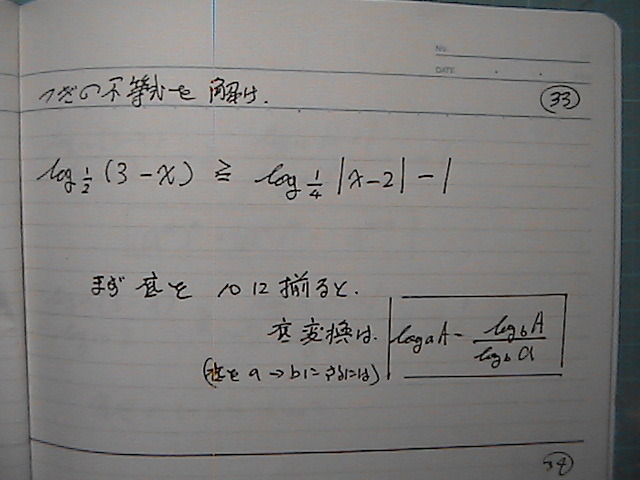 No.
DATE
つぎの不等式を解け.
33
log_{1/2} (3-x) ≧ log_{1/4} |x-2| -1
まず底を10に揃ると.
底変換は. log_a A = \frac{log_b A}{log_b a}
(底を a→bにするには)
34